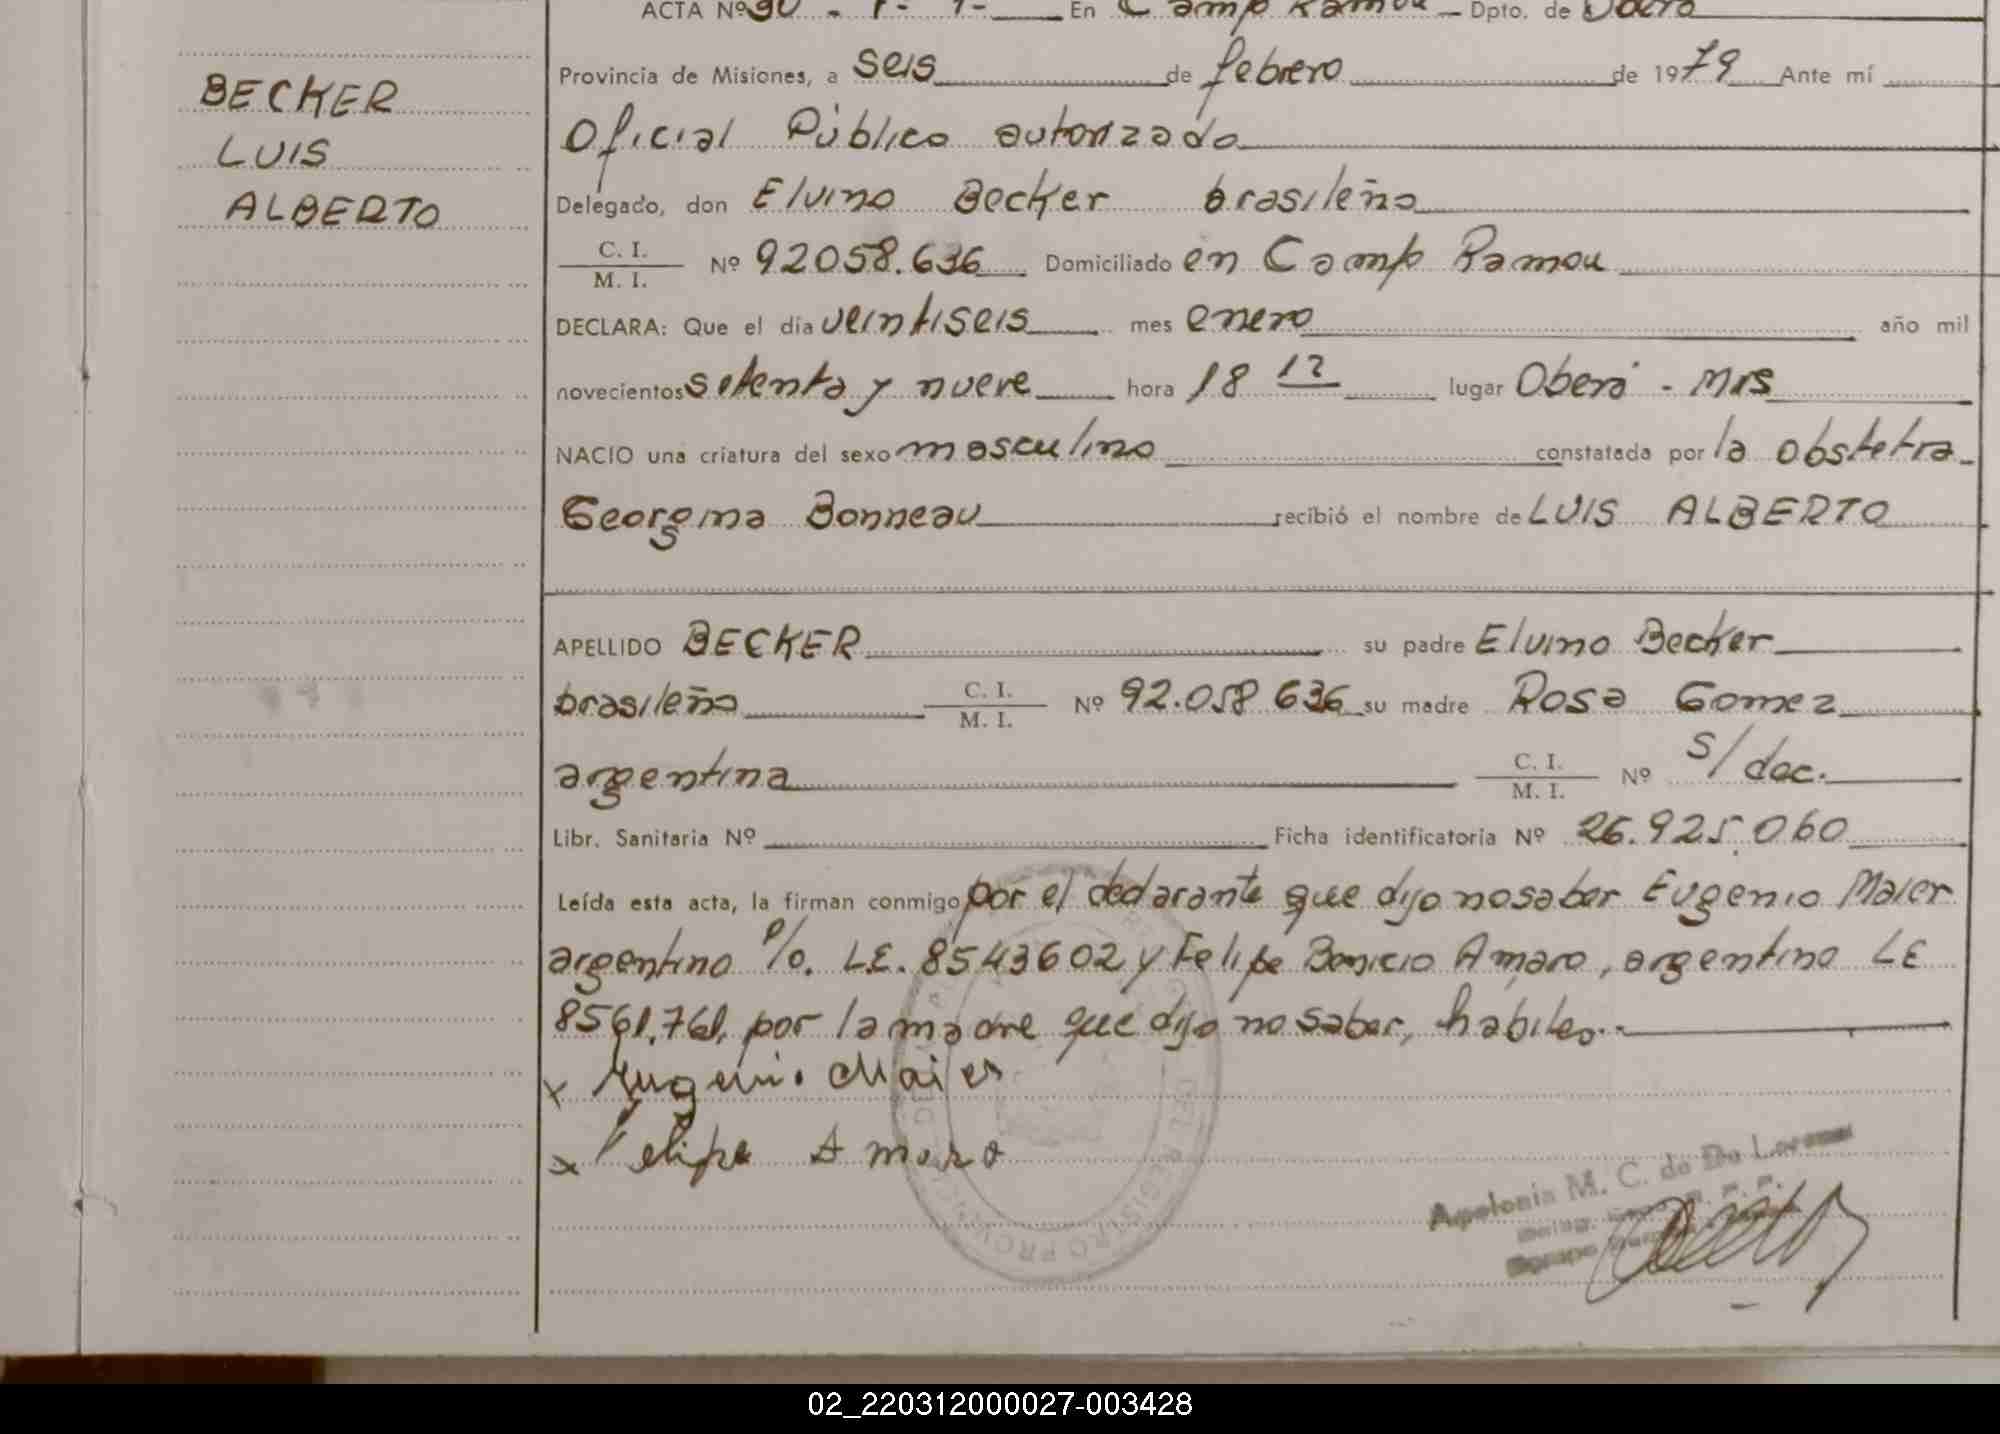 BECKER
LUIS
ALBERTO
ACTA Nº 90 - En Camp Ramou - Dpto. de Oberá
Provincia de Misiones, a seis de febrero de 1979 Ante mí
Oficial Público autorizado
Delegado, don Elvino Becker brasileño
C. I.
M. I. Nº 92058.636 Domiciliado en Camp Ramou
DECLARA: Que el día veintiseis mes enero año mil
novecientos setenta y nueve hora 18 12 lugar Oberá - Mis
NACIO una criatura del sexo masculino constatada por la obstetra
Georgina Bonneau recibió el nombre de LUIS ALBERTO
APELLIDO BECKER su padre Elvino Becker
brasileño C. I. M. I. Nº 92.058 636 su madre Rosa Gomez
argentina C. I. M. I. Nº s/doc.
Libr. Sanitaria Nº Ficha identificatoria Nº 26.925.060
Leída esta acta, la firman conmigo por el declarante que dijo no saber Eugenio Maier
argentino P/o. LE. 8543602 y Felipe Benicio Amaro, argentino LE
8561.761, por la madre que dijo no saber, habiles.
x Eugenio Maier
x Felipe Amaro
Apolonia M. C. de De
REGISTRO PROVINCI
02_220312000027-003428